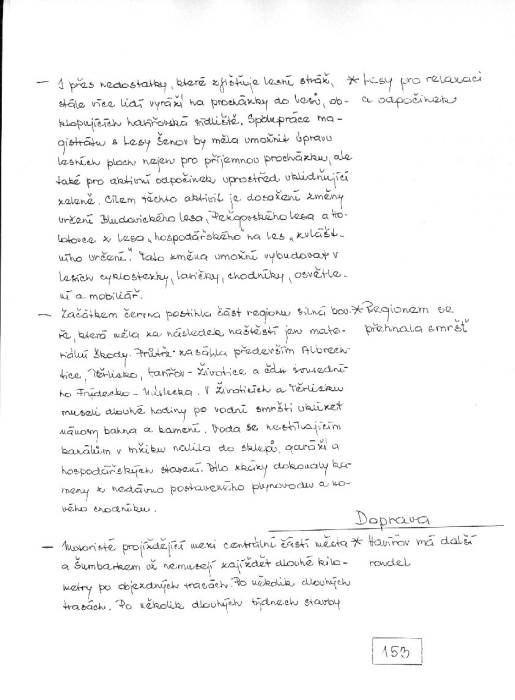 — I přes nedostatky, které zjišťuje lesní stráž, * Lesy pro relaxaci
stále více lidí vyráží na procházky do lesů, ob- a odpočinek
klopujících havířovská sídliště. Spolupráce ma-
gistrátu s Lesy Šenov by měla umožnit úpravu
lesních ploch nejen pro příjemnou procházku, ale
také pro aktivní odpočinek uprostřed uklidňující
zeleně. Cílem těchto aktivit je dosažení změny
určení Bludovického lesa, Pežgovského lesa a Ko-
lotovce z lesa „hospodářského" na les „zvlášt-
ního určení". Tato změna umožní vybudovat v
lesích cyklostezky, lavičky, chodníky, osvětle-
ní a mobiliář.
— Začátkem června postihla část regionu silná bou- * Regionem se
ře, která měla za následek naštěstí jen mate- přehnala smršť
riální škody. Průtrž zasáhla především Albrech-
tice, Těrlicko, Havířov-Životice a část sousední-
ho Frýdecko-Místecka. V Životicích a Těrlicku
museli dlouhé hodiny po vodní smršti uklízet
nánosy bahna a kamení. Voda se nestíhajícím
kanálům v mžiku nalila do sklepů, garáží a
hospodářských stavení. Dílo zkázy dokonaly ka-
meny z nedávno postaveného plynovodu a no-
vého chodníku.
Doprava
— Motoristé projíždějící mezi centrální částí města * Havířov má další
a Šumbarkem už nemusejí zajíždět dlouhé kilo- rondel
metry po objezdných trasách. Po několik dlouhých
trasách. Po několik dlouhých týdnech stavby
153